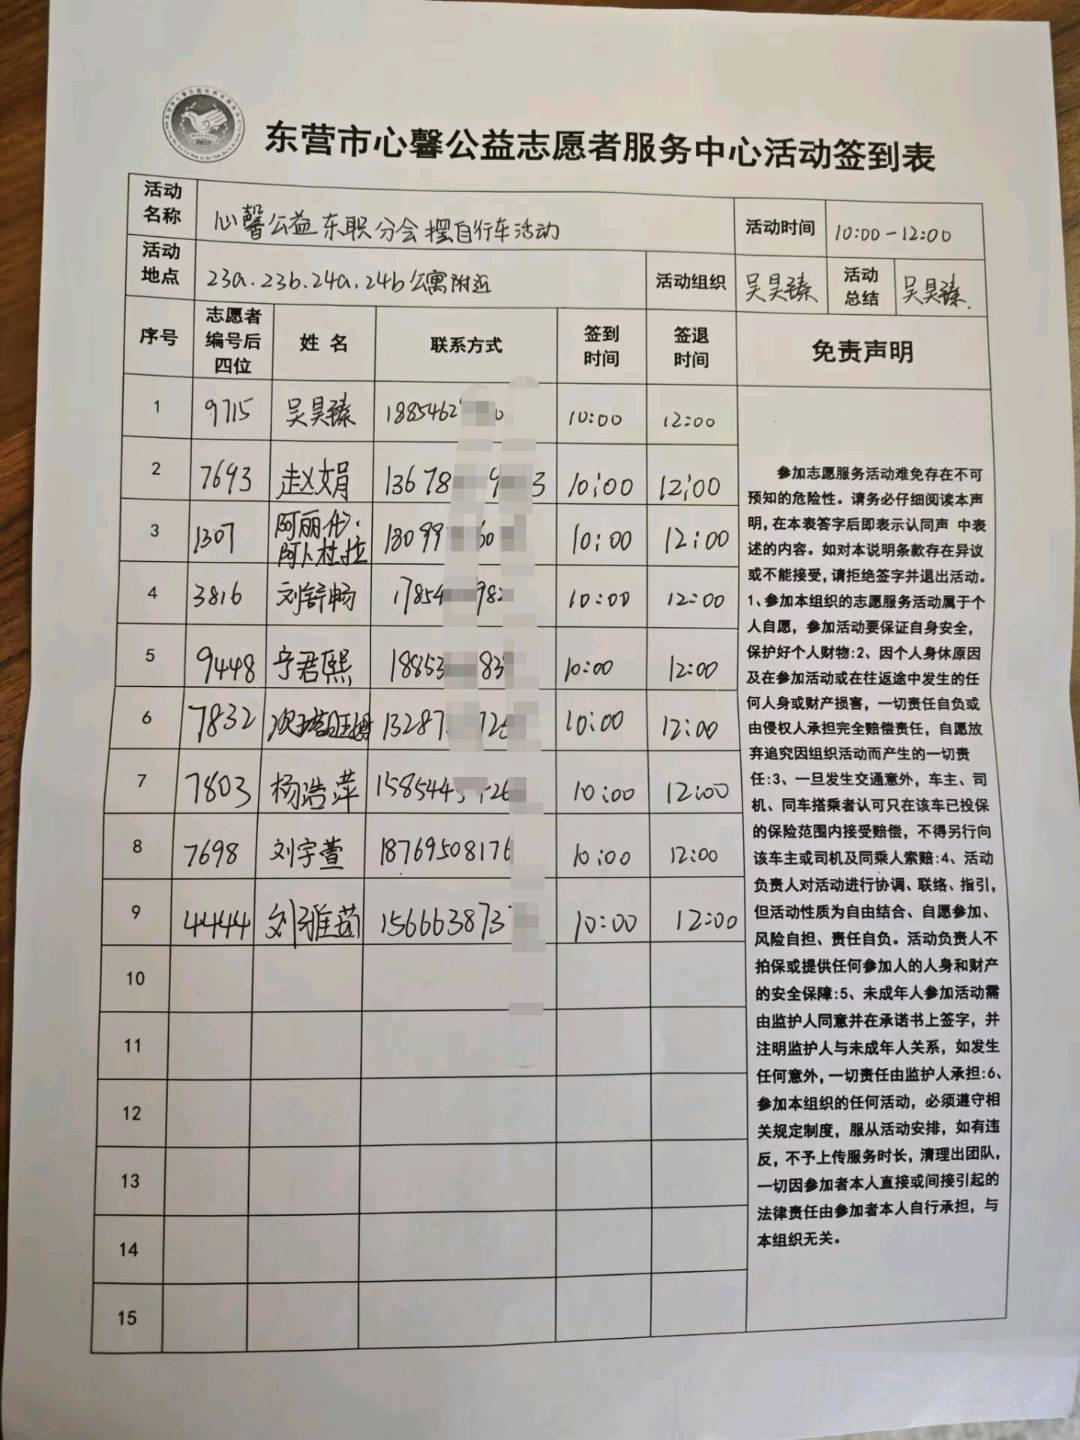 东营市心馨公益志愿者服务中心活动签到表
活动名称 心馨公益东职分会摆自行车活动 活动时间 10:00-12:00
活动地点 23a.23b.24a.24b公寓附近 活动组织 吴昊臻 活动总结 吴昊臻.
序号 志愿者编号后四位 姓名 联系方式 签到时间 签退时间 免责声明
1 9715 吴昊臻 1885462 10:00 12:00
2 7693 赵文娟 13678 9 3 10:00 12:00
3 1307 阿卜杜拉 13099 60 10:00 12:00
4 3816 刘舒畅 17854 982 10:00 12:00
5 9448 宁君熙 18853 83 10:00 12:00
6 7832 13287 72 10:00 12:00
7 7803 杨浩萍 1585445 26 10:00 12:00
8 7698 刘宇萱 18769508176 10:00 12:00
9 4444 刘雅茹 156663873 10:00 12:00
10
11
12
13
14
15
参加志愿服务活动难免存在不可
预知的危险性。请务必仔细阅读本声
明,在本表答字后即表示认同声 中表
述的内容。如对本说明条款存在异议
或不能接受,请拒绝签字并退出活动。
1、参加本组织的志愿服务活动属于个
人自愿，参加活动要保证自身安全,
保护好个人财物:2、因个人身休原因
及在参加活动或在往返途中发生的任
何人身或财产损害，一切责任自负或
由侵权人承担完全赔偿责任，自愿放
弃追究因组织活动而产生的一切责
任:3、一旦发生交通意外，车主、司
机、同车搭乘者认可只在该车已投保
的保险范围内接受赔偿，不得另行向
该车主或司机及同乘人索赔:4、活动
负责人对活动进行协调、联络、指引,
但活动性质为自由结合、自愿参加、
风险自担、责任自负。活动负责人不
拍保或提供任何参加人的人身和财产
的安全保障:5、未成年人参加活动需
由监护人同意并在承诺书上签字，并
注明监护人与未成年人关系，如发生
任何意外,一切责任由监护人承担:6、
参加本组织的任何活动，必须遵守相
关规定制度，服从活动安排，如有违
反，不予上传服务时长，清理出团队,
一切因参加者本人直接或间接引起的
法律责任由参加者本人自行承担，与
本组织无关。